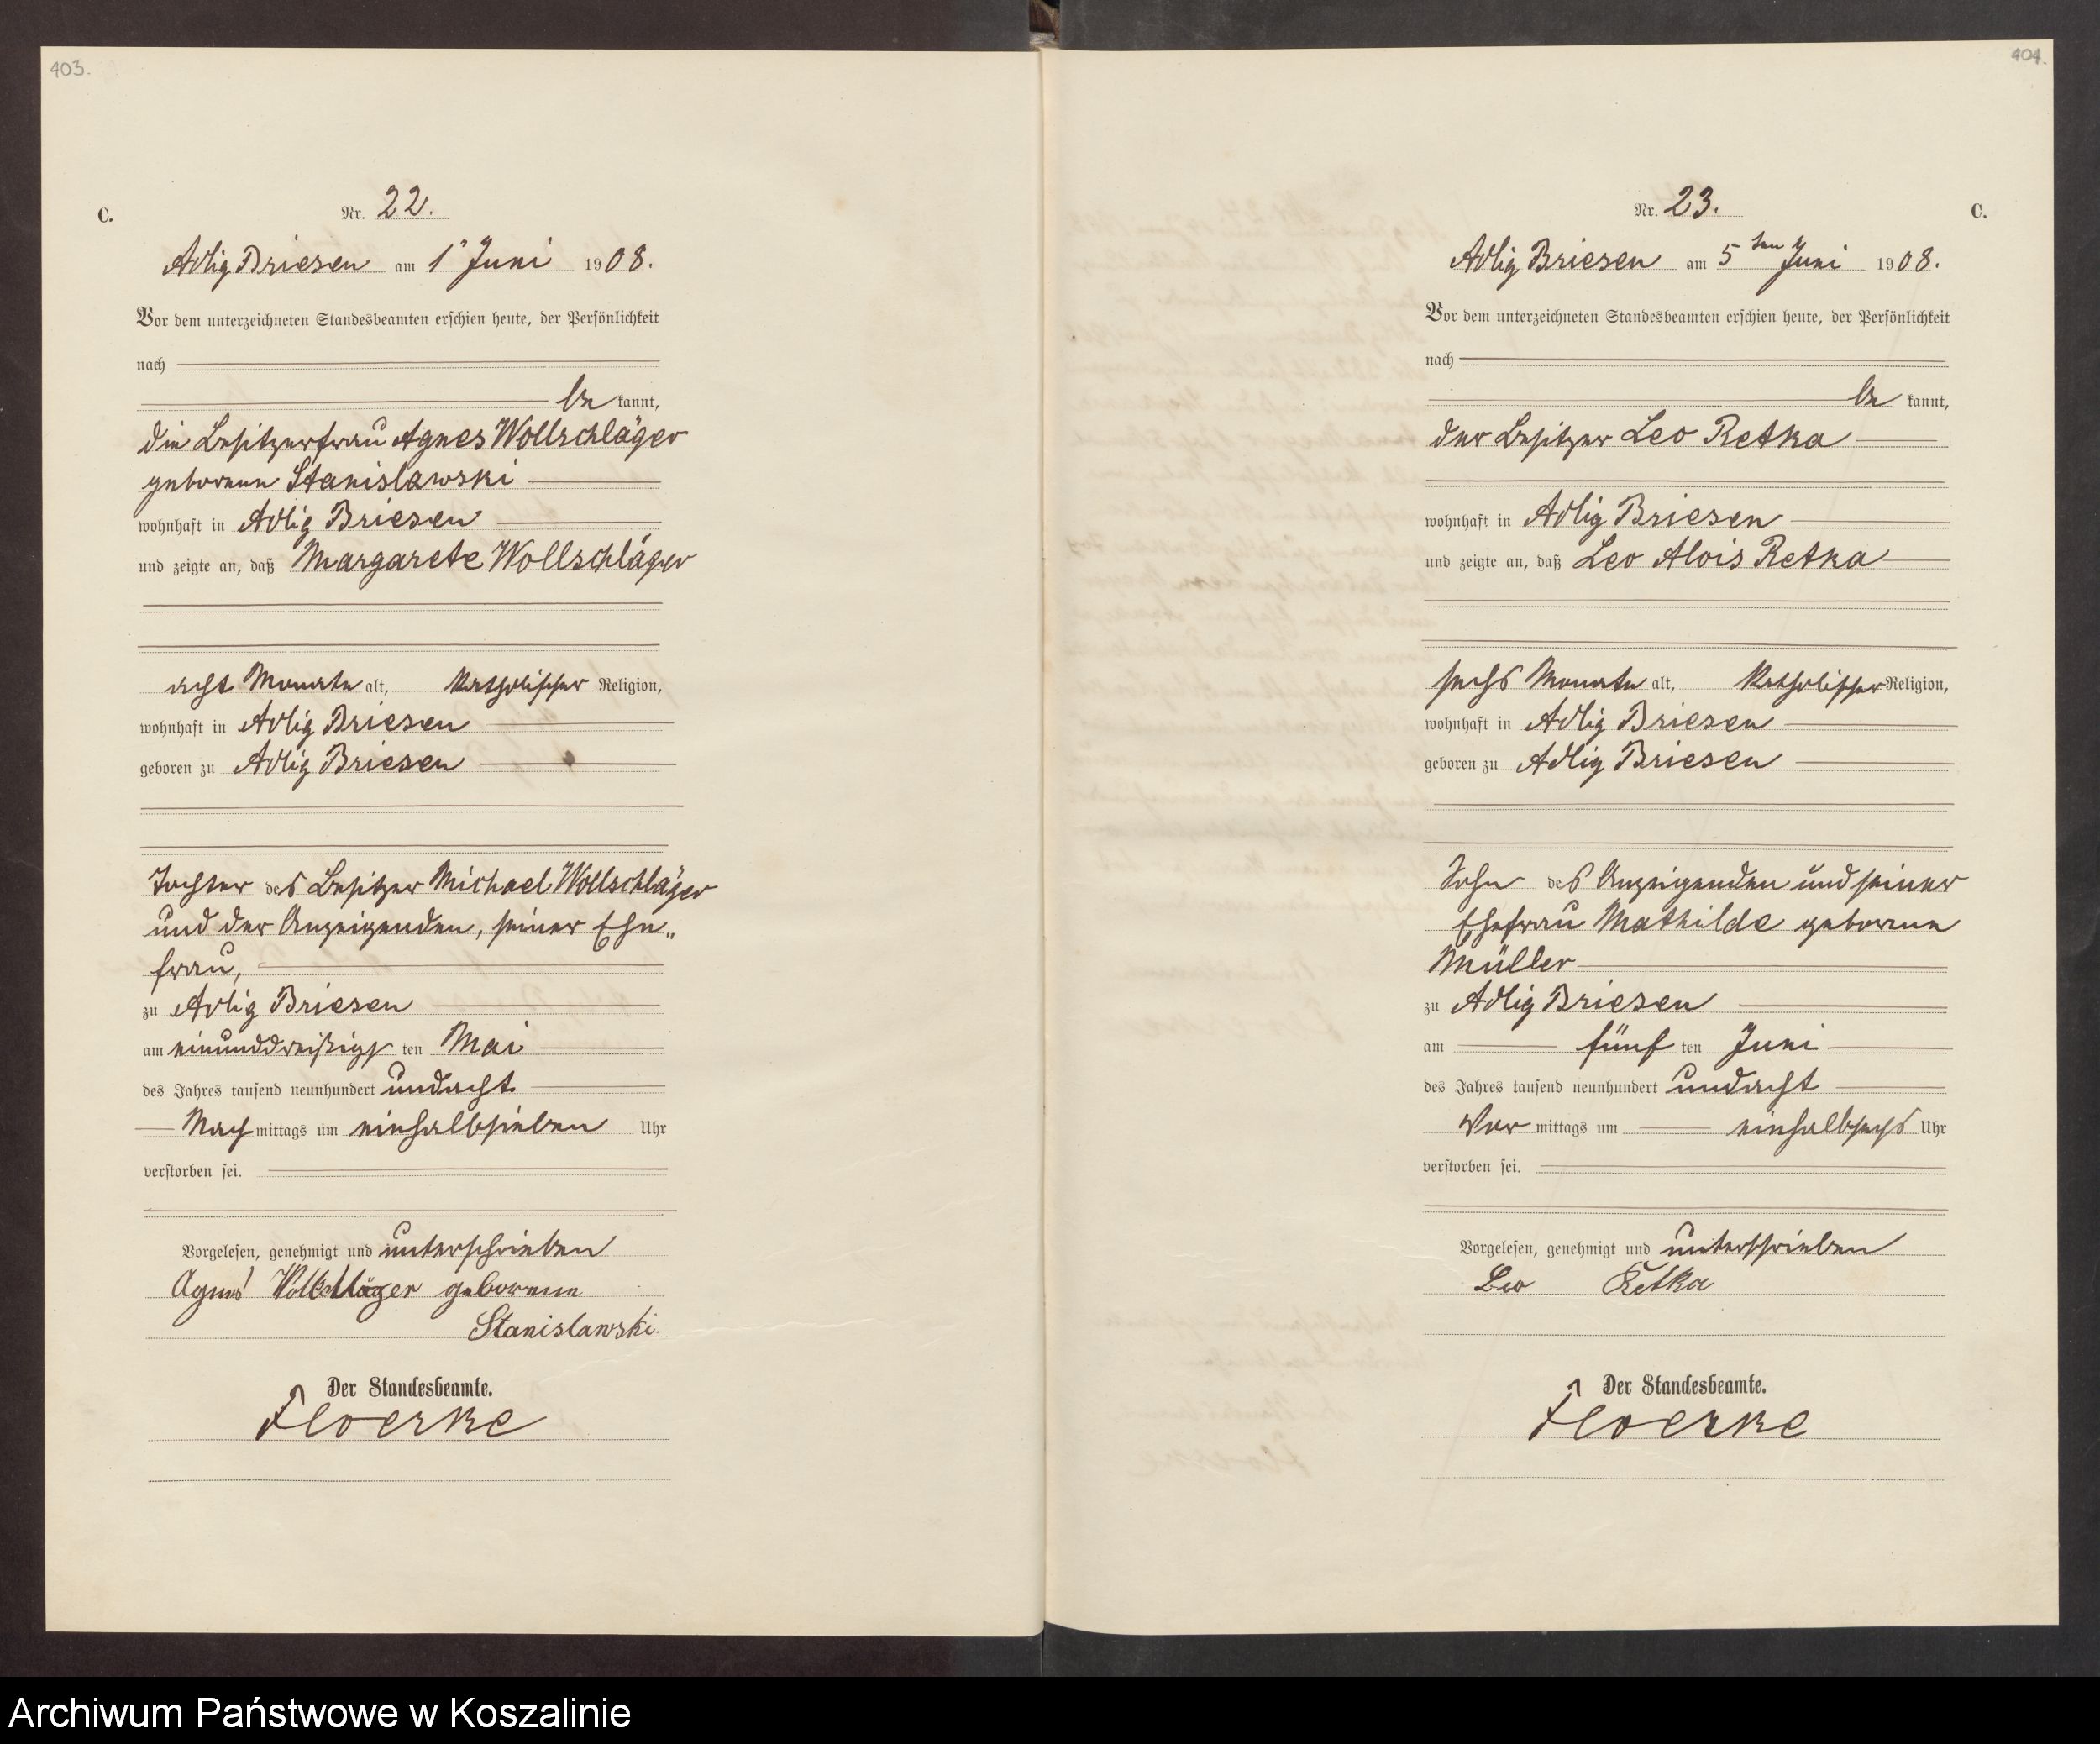 403.
C.
Nr. 22.
Adlig Briesen am 1' Juni 1908.
Vor dem unterzeichneten Standesbeamten erschien heute, der Persönlichkeit
nach
be kannt,
die Besitzerfrau Agnes Wollschläger
geborene Stanislawski
wohnhaft in Adlig Briesen
und zeigte an, daß Margarete Wollschläger
acht Monate alt, katholischer Religion,
wohnhaft in Adlig Briesen
geboren zu Adlig Briesen
Tochter des Besitzer Michael Wollschläger
und der Anzeigenden, seiner Ehe„
frau,
zu Adlig Briesen
am einunddreißigs ten Mai
des Jahres tausend neunhundert undacht
Nach mittags um einhalbsieben Uhr
verstorben sei.
Vorgelesen, genehmigt und unterschrieben
Agnes Wollschläger geborene
Stanislawski.
Der Standesbeamte.
Floerke
404.
C.
Nr. 23.
Adlig Briesen am 5ten Juni 1908.
Vor dem unterzeichneten Standesbeamten erschien heute, der Persönlichkeit
nach
be kannt,
der Besitzer Leo Retka
wohnhaft in Adlig Briesen
und zeigte an, daß Leo Alois Retka
sechs Monate alt, katholischer Religion,
wohnhaft in Adlig Briesen
geboren zu Adlig Briesen
Sohn des Anzeigenden und seiner
Ehefrau Mathilde geborene
Müller
zu Adlig Briesen
am fünf ten Juni
des Jahres tausend neunhundert undacht
Vor mittags um einhalbsechs Uhr
verstorben sei.
Vorgelesen, genehmigt und unterschrieben
Leo Retka
Der Standesbeamte.
Floerke
Archiwum Państwowe w Koszalinie